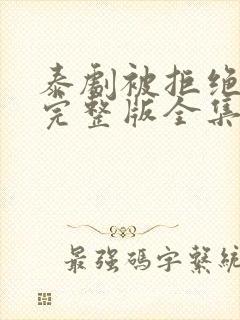 泰劇被拒绝
完整版全集
最强碼字繫統